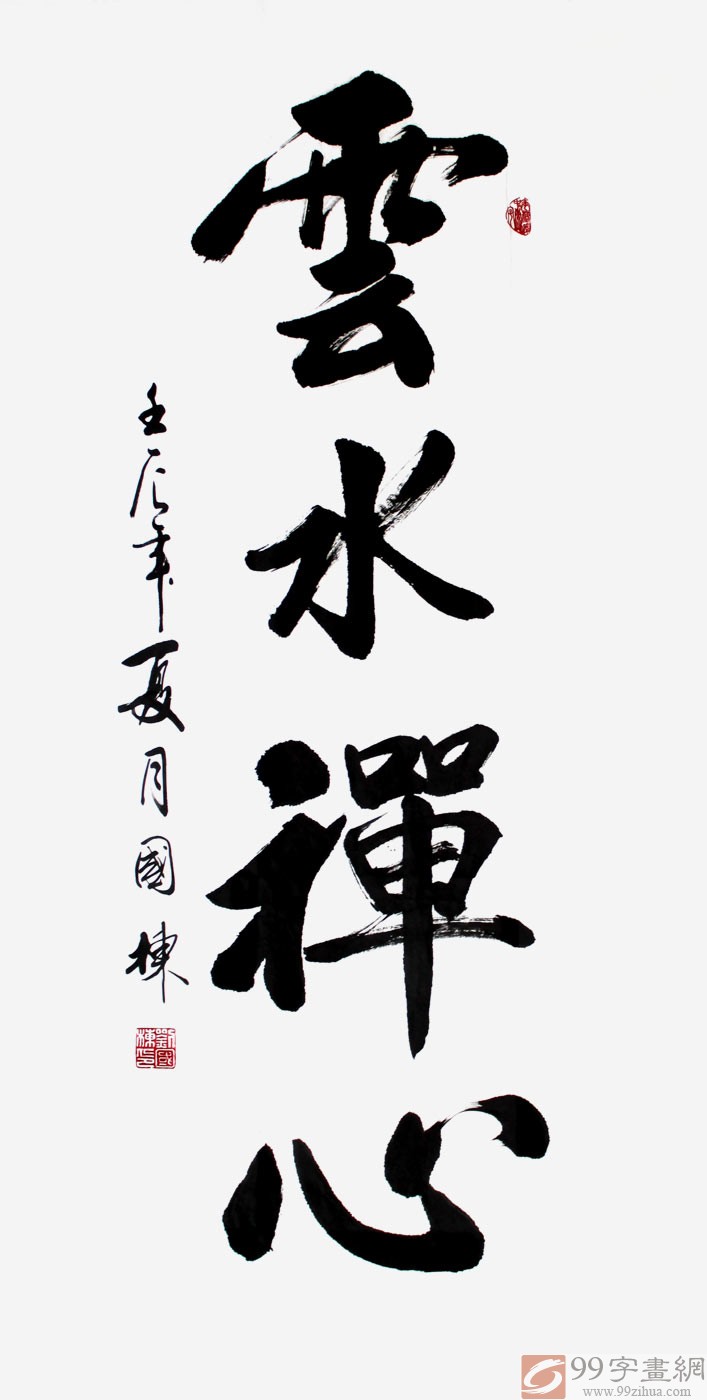 雲水禪心
壬辰年夏月國棟
劉國棟印
99字畫網
www.99zihua.com